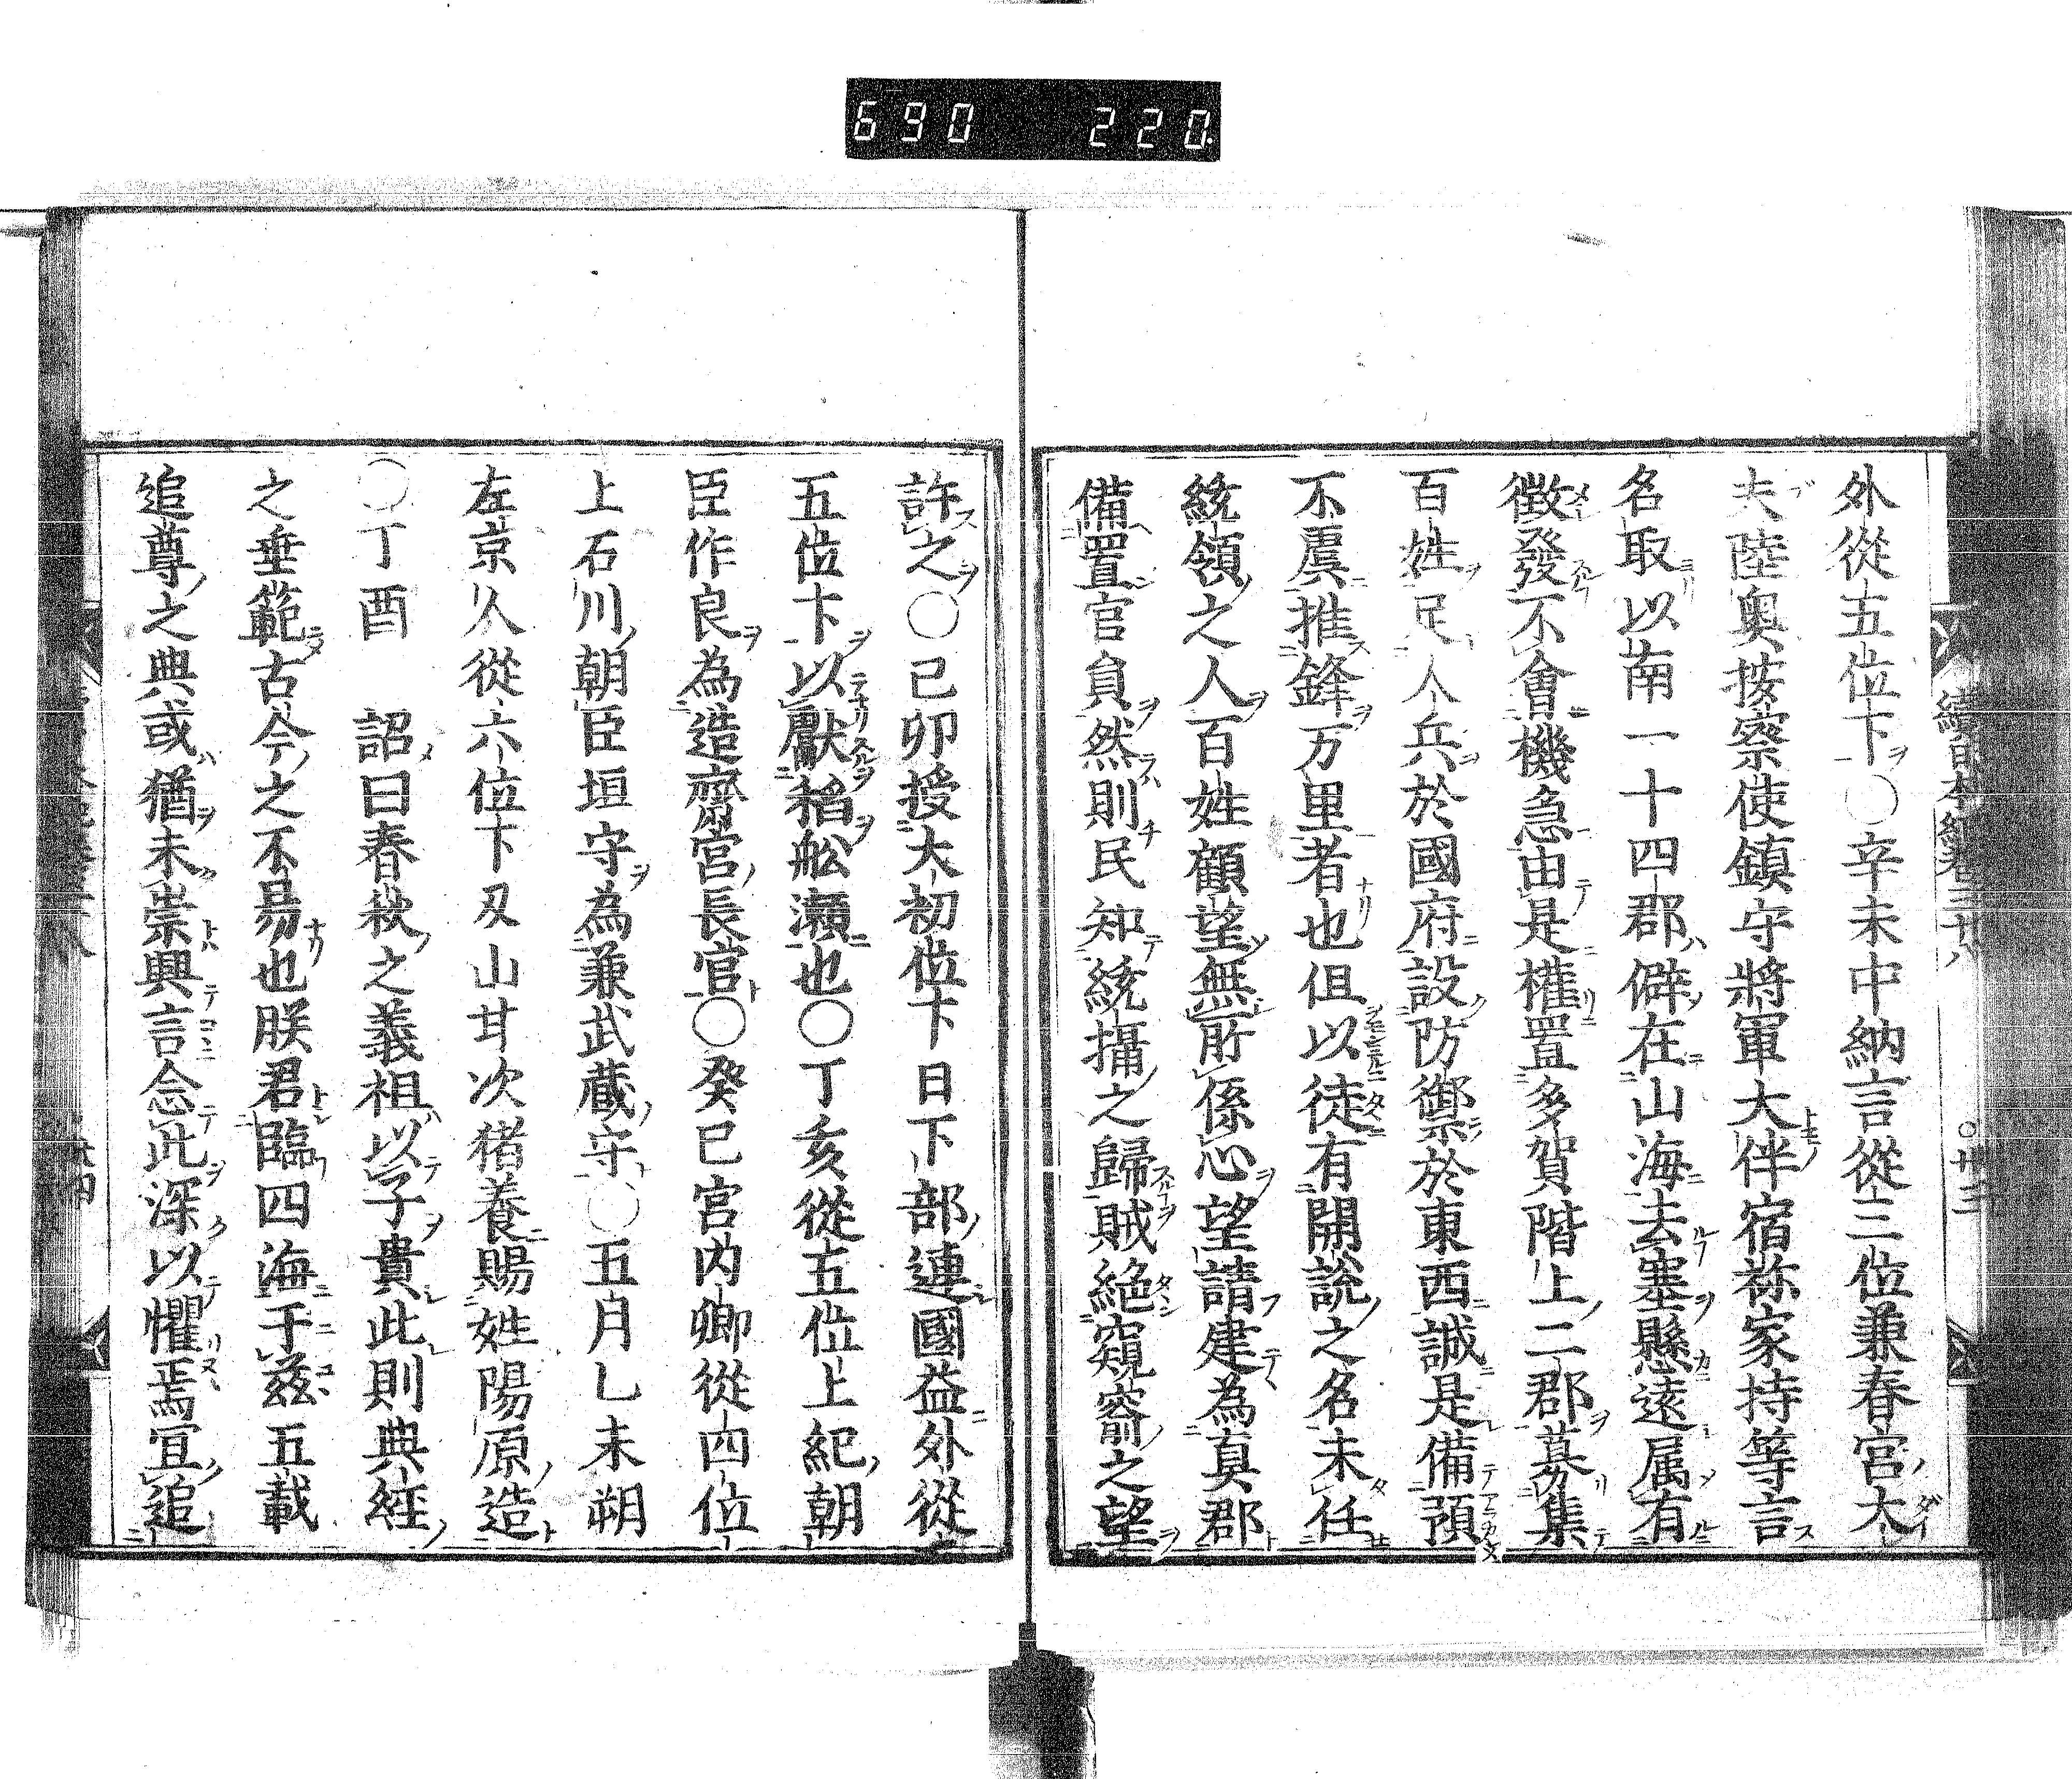 690 220
續日本紀卷三十八 ○廿三
外從五位下○辛未中納言從三位兼春宮大
夫陸奥按察使鎮守將軍大伴宿祢家持等言
名取以南一十四郡僻在山海去塞懸遠属有
徴發不會機急由是權置多賀階上二郡募集
百姓足人兵於國府設防禦於東西誠是備預
不虞推鋒万里者也但以徒有開説之名未任
統領之人百姓顧望無所係心望請建為真郡
備置官員然則民知統攝之歸賊絶窺窬之望
許之○己卯授大初位下日下部連國益外從
五位下以獻稻舩瀬也○丁亥從五位上紀朝
臣作良為造齋宮長官○癸巳宮内卿從四位
上石川朝臣垣守為兼武蔵守○五月乚未朔
左京人從六位下丑山甘次猪養賜姓湯原造
○丁酉 詔曰春秋之義祖以子貴此則典經
之垂範古今之不易也朕君臨四海于兹五載
追尊之典或猶未崇興言念此深以懼焉宜追